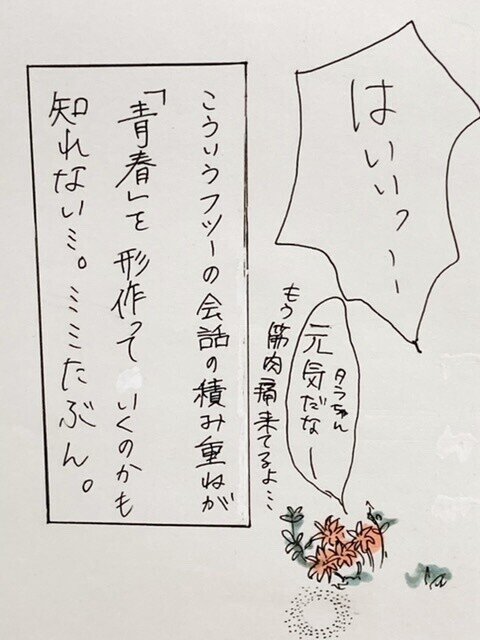 はいいッーー
タラちゃん
元気だなー
もう筋肉痛来てるよ…
こういうフツーの会話の積み重ねが
「青春」を形作っていくのかも
知れない…。……たぶん。